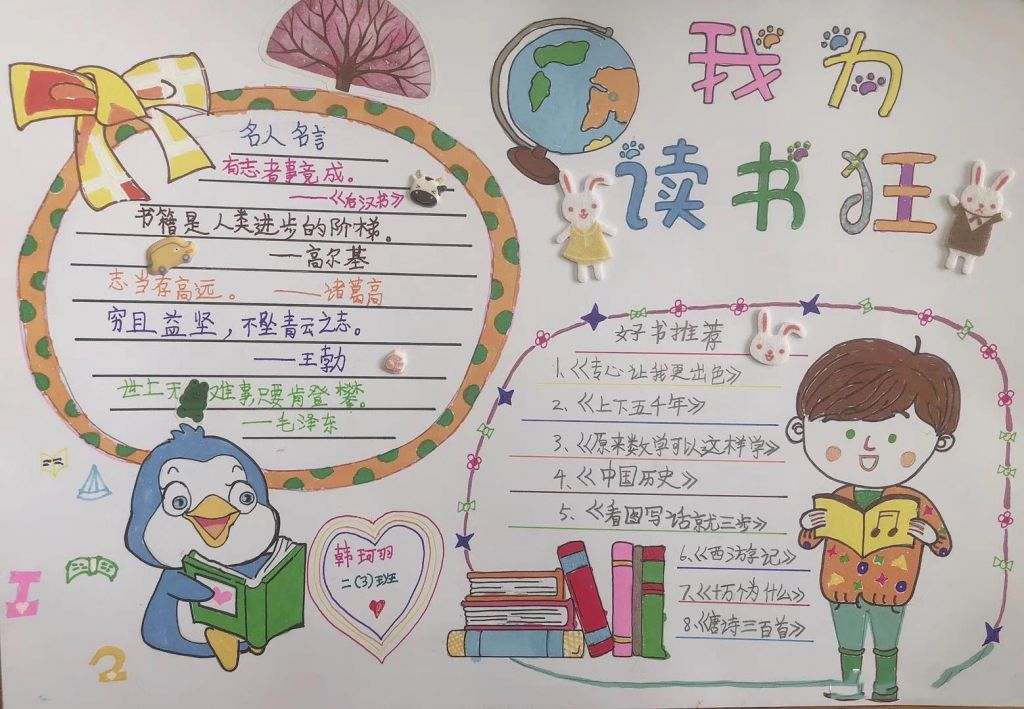 我为
读书狂
名人名言
有志者事竟成。
——《后汉书》
书籍是人类进步的阶梯。
——高尔基
志当存高远。——诸葛高
穷且益坚，不坠青云之志。
——王勃
世上无难事只要肯登攀。
——毛泽东
韩珂羽
二(3)班
好书推荐
1、《专心让我更出色》
2、《上下五千年》
3、《原来数学可以这样学》
4、《中国历史》
5、《看图写话就三步》
6、《西游记》
7、《十万个为什么》
8、《唐诗三百首》